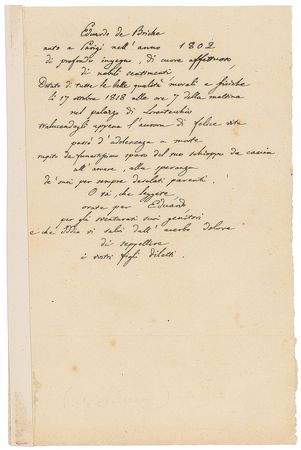 Eduardo de Briche
nato a Parigi nell' anno 1802
di profondo ingegno, di cuore affettuoso
di nobili sentimenti
Dotato di tutte le belle qualità morali e fisiche
il 17 ottobre 1818 alle ore 7 della mattina
nel palazzo di
appena l'aurora di felice vita
passò d'adolescenza a morte
rapito da funestissimo sparo del suo schioppo da caccia
all' amore, alla speranza
de' suoi per sempre desolati parenti.
O tu, che leggere
orate per Eduardo
per gli sventurati suoi genitori
e che Iddio vi salvi dall' acerbo dolore
di seppellire
i vostri figli diletti.